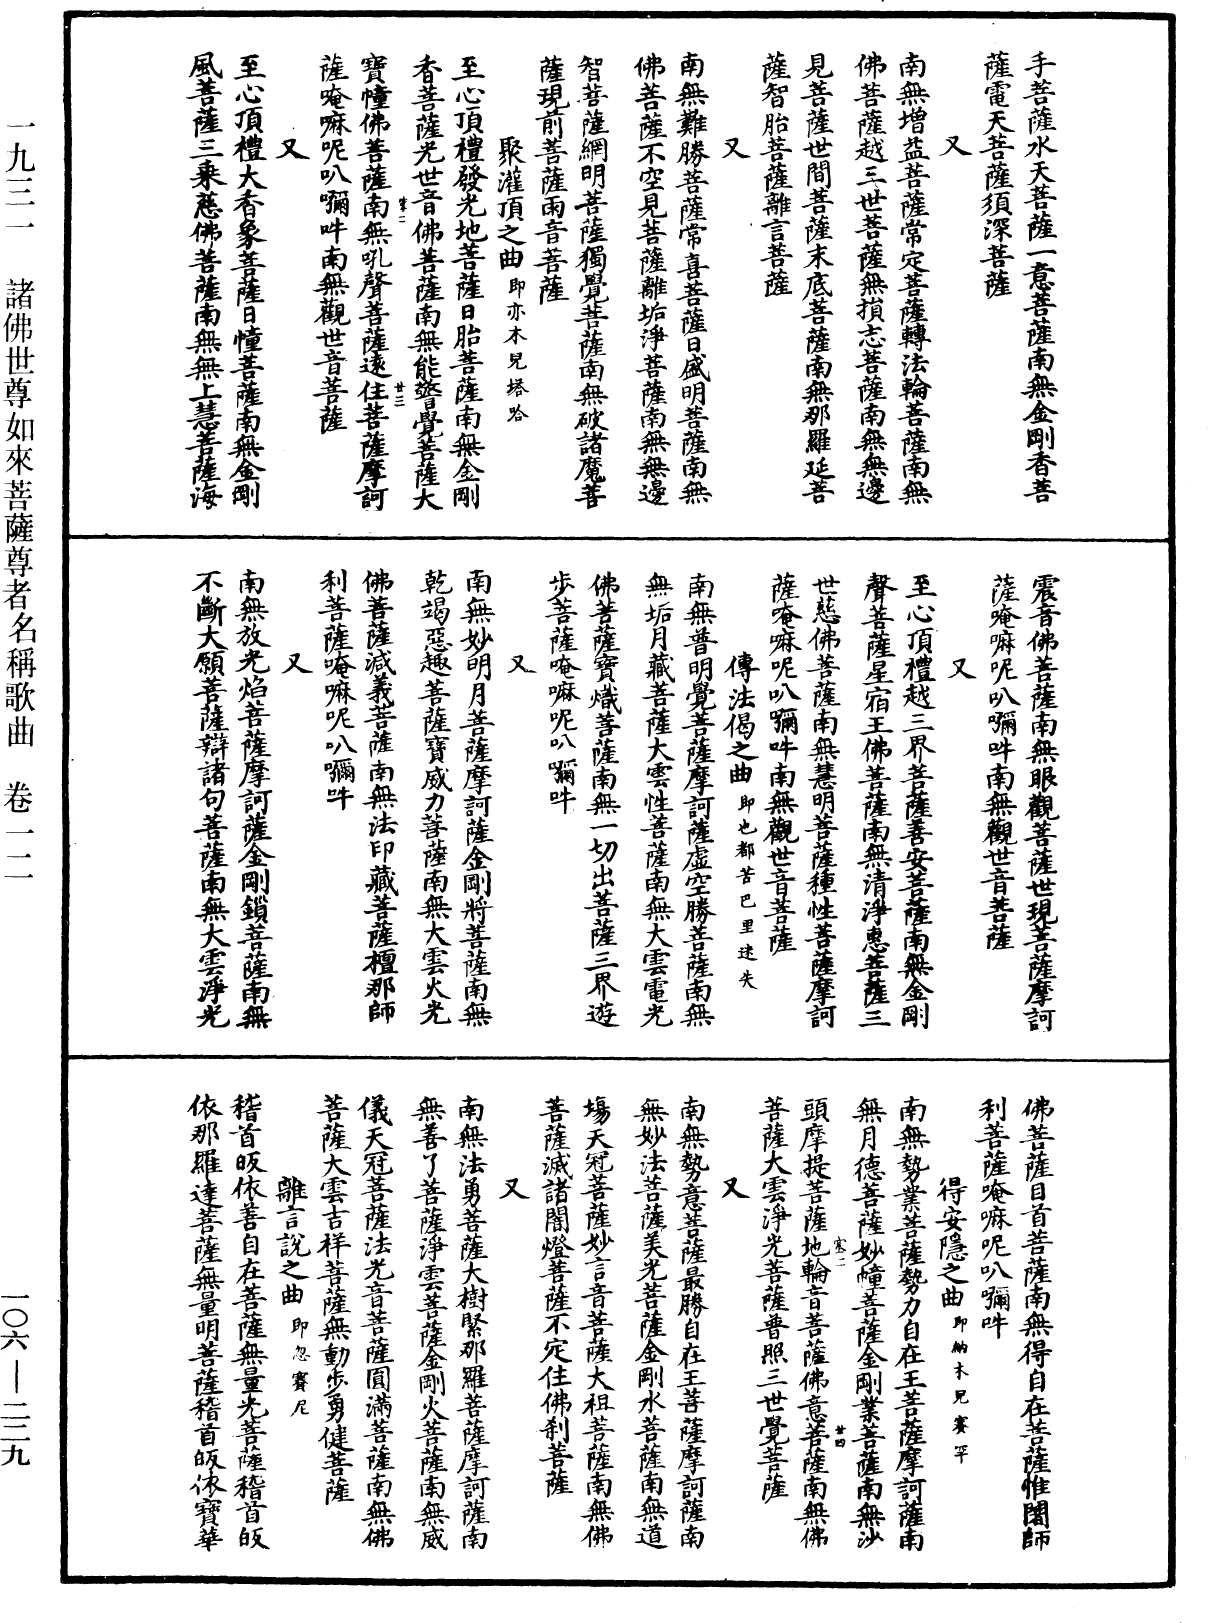 手菩薩水天菩薩一意菩薩南無金剛香菩
薩電天菩薩須深菩薩
又
南無增益菩薩常定菩薩轉法輪菩薩南無
佛菩薩越三世菩薩無損志菩薩南無無邊
見菩薩世間菩薩末底菩薩南無那羅延菩
薩智胎菩薩離言菩薩
又
南無難勝菩薩常喜菩薩日盛明菩薩南無
佛菩薩不空見菩薩離垢淨菩薩南無無邊
智菩薩網明菩薩獨覺菩薩南無破諸魔菩
薩現前菩薩雨音菩薩
聚灌頂之曲 即亦木兒塔哈
至心頂禮發光地菩薩日胎菩薩南無金剛
香菩薩光世音佛菩薩南無能警覺菩薩大
寶幢佛菩薩南無吼聲菩薩遠住菩薩摩訶
薩唵嘛呢叭囑吽南無觀世音菩薩
又
至心頂禮大香象菩薩日幢菩薩南無金剛
風菩薩三乘慈佛菩薩南無無上慧菩薩海
震音佛菩薩南無眼觀菩薩世現菩薩摩訶
薩唵嘛呢叭囑吽南無觀世音菩薩
又
至心頂禮越三界菩薩善安菩薩南無金剛
聲菩薩星宿王佛菩薩南無清淨惠菩薩三
世慈佛菩薩南無慧明菩薩種性菩薩摩訶
薩唵嘛呢叭囑吽南無觀世音菩薩
傳法偈之曲 即也都苦巴里迷失
南無普明覺菩薩摩訶薩虛空勝菩薩南無
無垢月藏菩薩大雲性菩薩南無大雲電光
佛菩薩寶熾菩薩南無一切出菩薩三界遊
步菩薩唵嘛呢叭囑吽
又
南無妙明月菩薩摩訶薩金剛將菩薩南無
乾竭惡趣菩薩寶威力菩薩南無大雲火光
佛菩薩減義菩薩南無法印藏菩薩檀那師
利菩薩唵嘛呢叭囑吽
又
南無放光焰菩薩摩訶薩金剛鎖菩薩南無
不斷大願菩薩辯諸句菩薩南無大雲淨光
佛菩薩日首菩薩南無得自在菩薩惟闍師
利菩薩唵嘛呢叭囑吽
得安隱之曲 即納木兒賽罕
南無勢業菩薩勢力自在王菩薩摩訶薩南
無月德菩薩妙幢菩薩金剛業菩薩南無沙
頭摩提菩薩地輪音菩薩佛意菩薩南無佛
菩薩大雲淨光菩薩普照三世覺菩薩
又
南無勢意菩薩最勝自在王菩薩摩訶薩南
無妙法菩薩美光菩薩金剛水菩薩南無道
場天冠菩薩妙言音菩薩大祖菩薩南無佛
菩薩滅諸闇燈菩薩不定住佛刹菩薩
又
南無法勇菩薩大樹緊那羅菩薩摩訶薩南
無善了菩薩淨雲菩薩金剛火菩薩南無威
儀天冠菩薩法光音菩薩圓滿菩薩南無佛
菩薩大雲吉祥菩薩無動步勇健菩薩
離言說之曲 即忽賽尼
稽首皈依善自在菩薩無量光菩薩稽首皈
依那羅達菩薩無量明菩薩稽首皈依寶華
一九三一 諸佛世尊如來菩薩尊者名稱歌曲 卷一二
一〇六—二三九